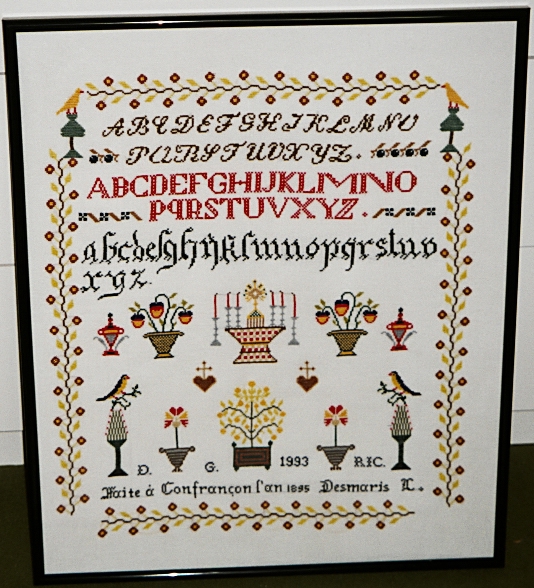 ABCDEFGHIJKLMNO
PQRSTUVXYZ.
ABCDEFGHIJKLMNO
PQRSTUVXYZ.
abcdefghijklmnopqrstuv
xyz.
D. G. 1993 R.C.
Faite à Confrançon l'an 1895 Desmaris L.